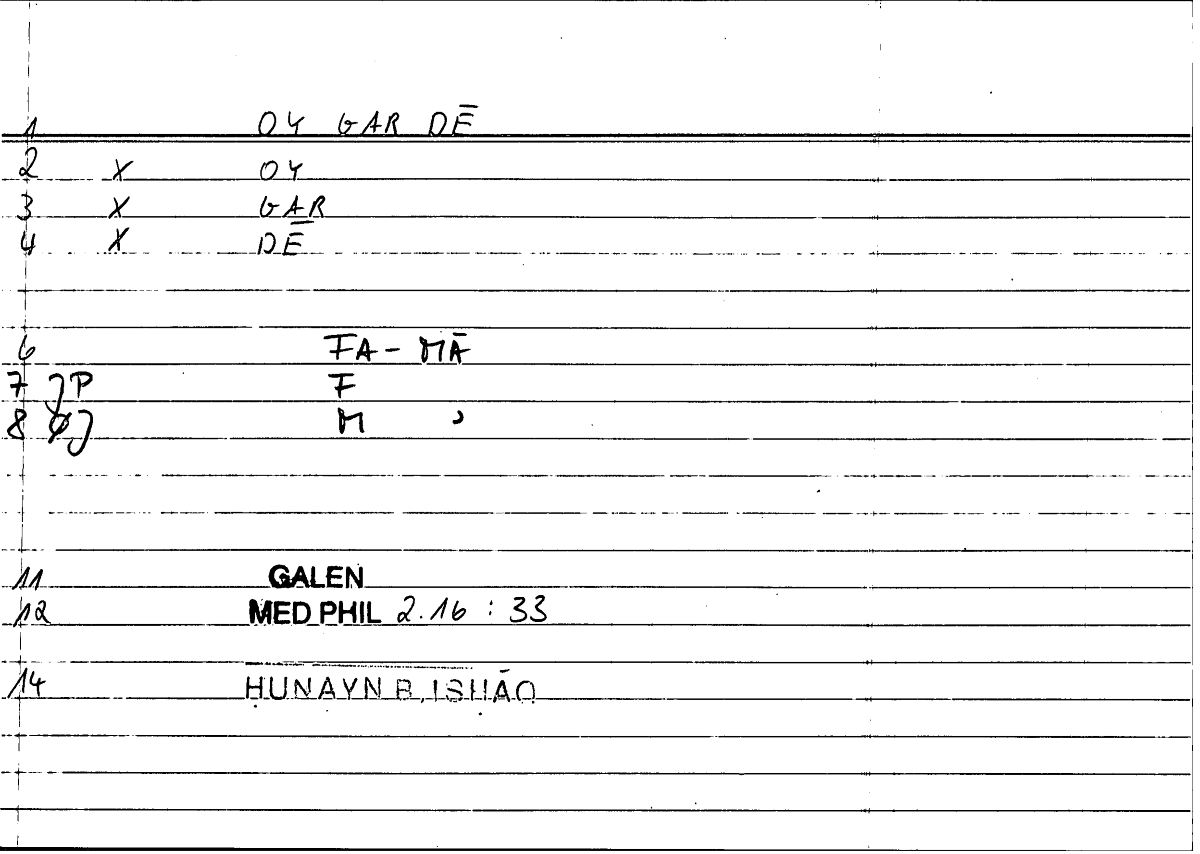 1 OY GAR DĒ
2 X OY
3 X GAR
4 X DĒ
6 FA - MĀ
7 JP F
8 ØJ M ʾ
11 GALEN
12 MED PHIL 2.16 : 33
14 ḤUNAYN B. ISḤĀQ